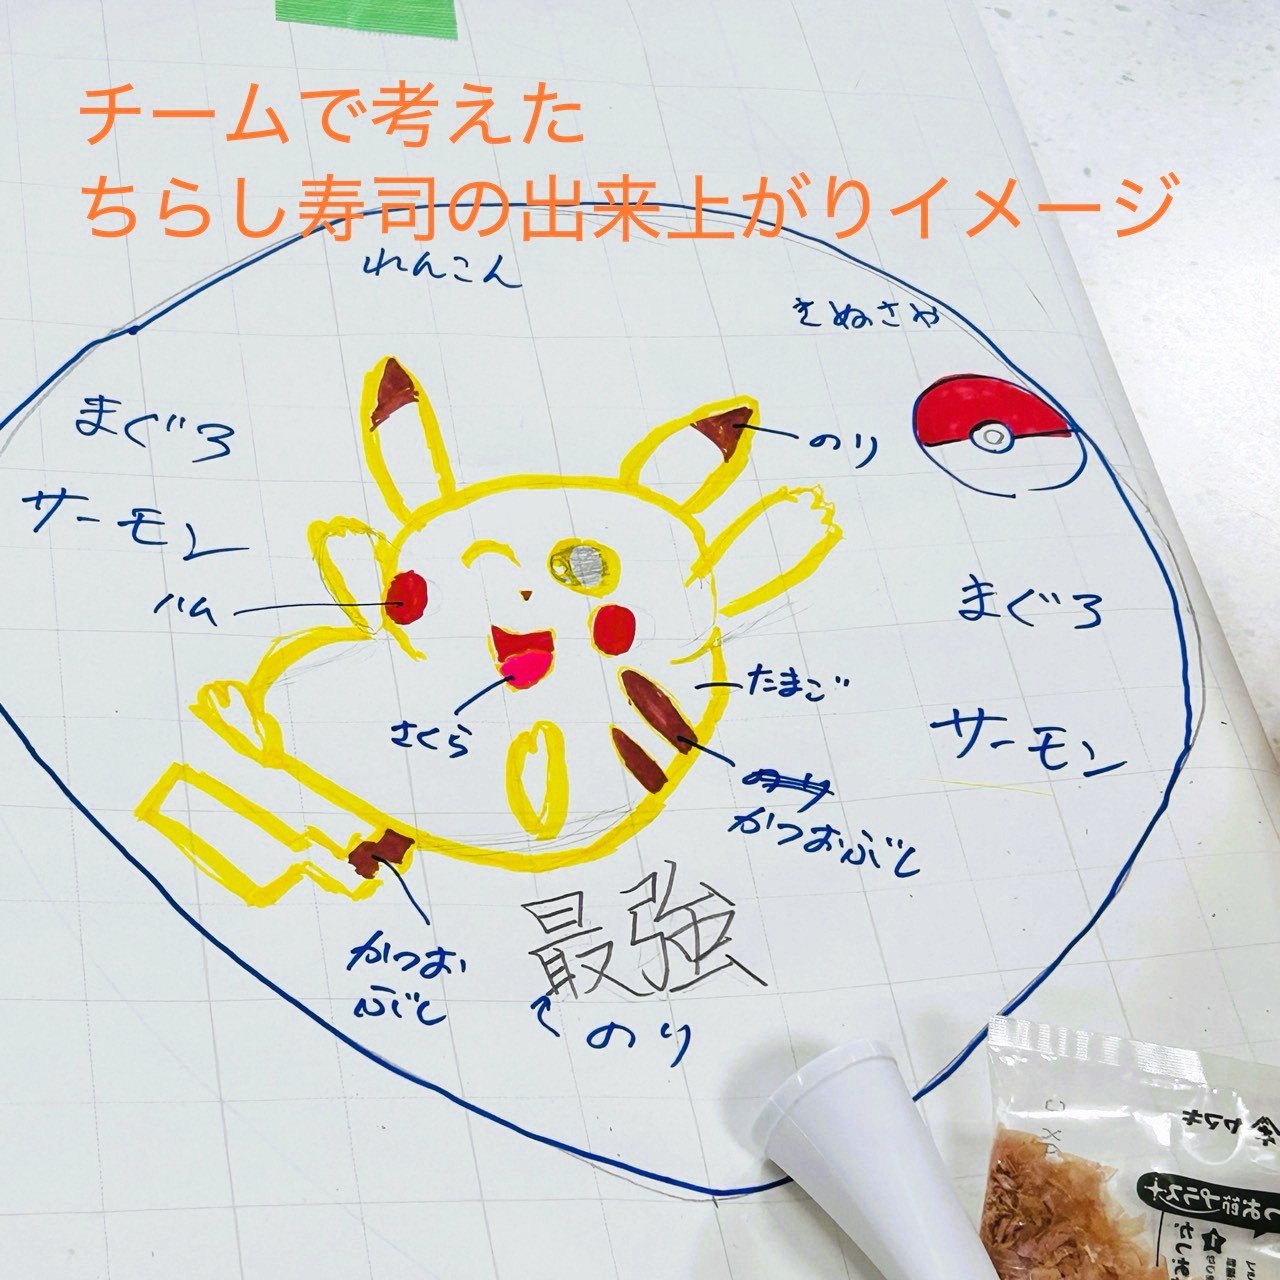 チームで考えた
ちらし寿司の出来上がりイメージ
れんこん
きぬさや
まぐろ
のり
サーモン
ハム
まぐろ
たまご
さくら
サーモン
のり
かつおぶし
最強
かつお
ぶし
のり
ヤマキ